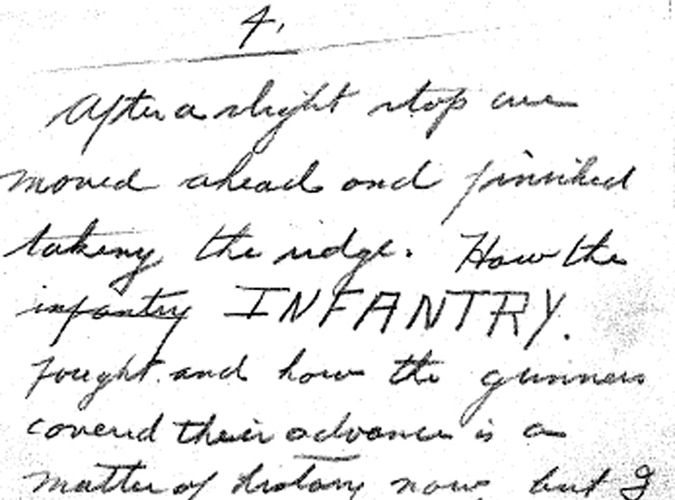 4.
After a slight stop we
moved ahead and finished
taking the ridge. How the
infantry INFANTRY.
fought and how the gunners
covered their advance is a
matter of history now but I